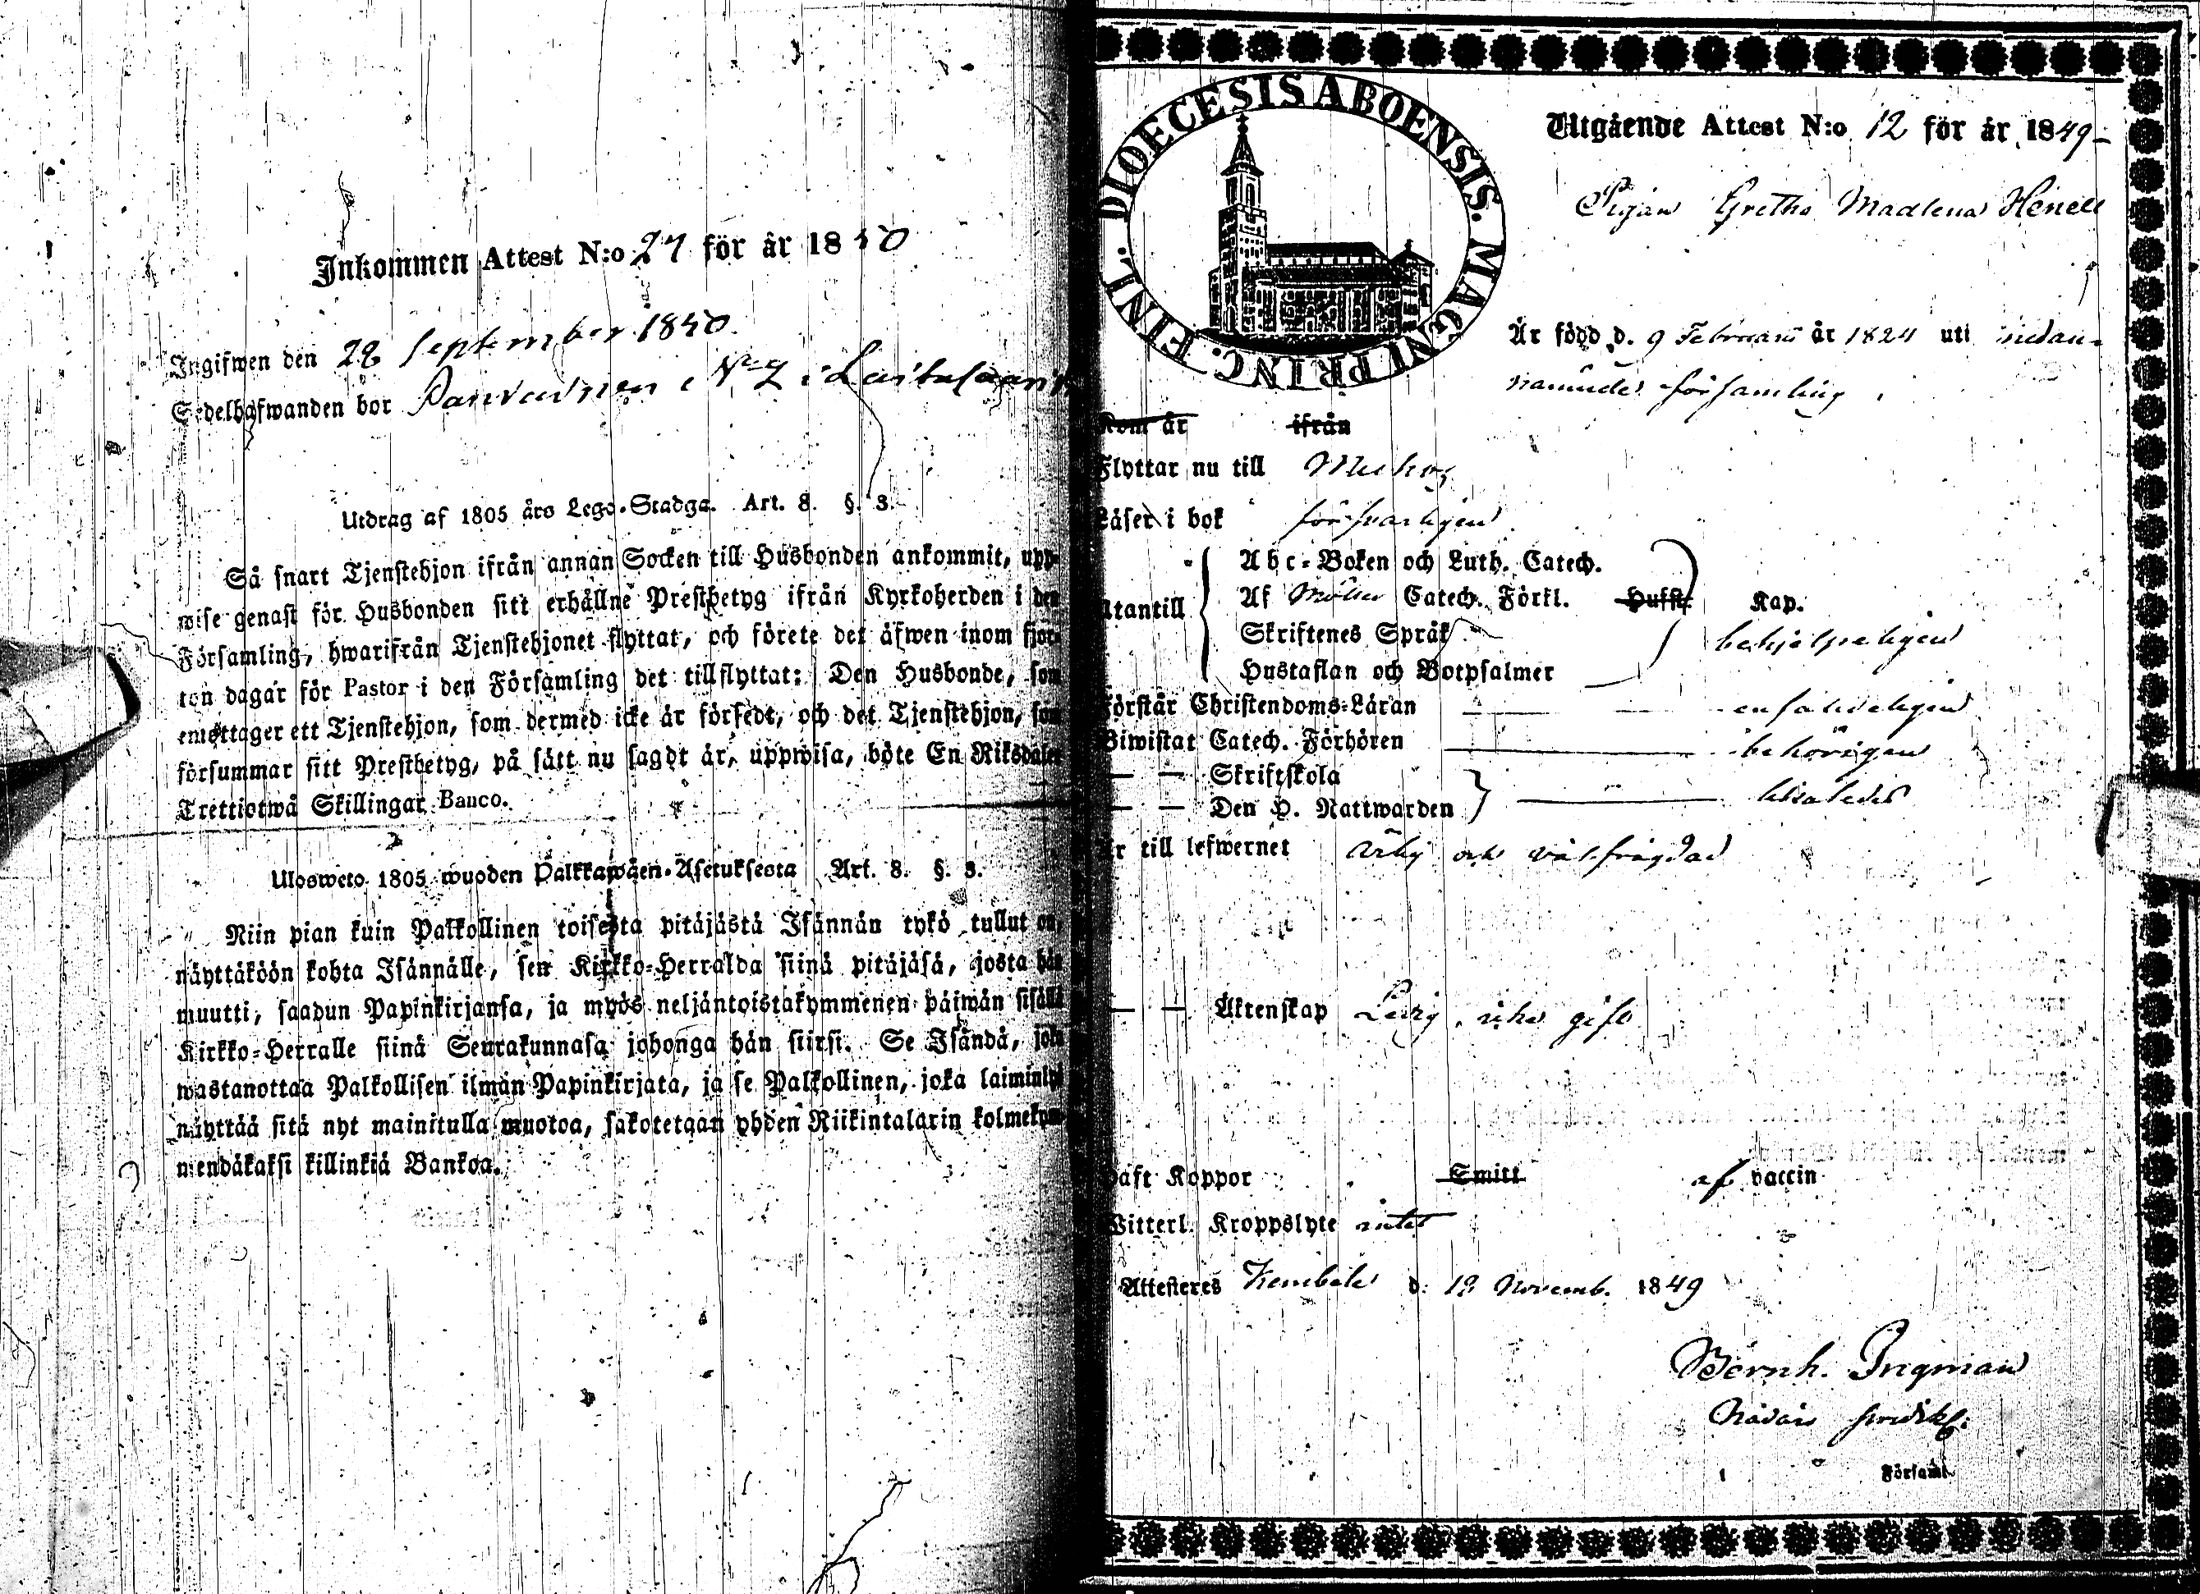 Inkommen Attest N:o 27 för år 1850
Ingifwen den 28 September 1850.
Sedelhafwanden bor
Utdrag af 1805 års Lego-Stadga. Art. 8. §. 3.
Så snart Tjenstehjon ifrån annan Socken till Husbonden ankommit, upp-
wise genast för Husbonden sitt erhållne Prestbetyg ifrån Kyrkoherden i den
Församling, hwarifrån Tjenstehjonet flyttat, och förete det äfwen inom fjor-
ton dagar för Pastor i den Församling det tillflyttat: Den Husbonde, som
emottager ett Tjenstehjon, som dermed icke är försedt, och det Tjenstehjon, som
försummar sitt Prestbetyg, på sätt nu sagdt är, uppwisa, böte En Riksdaler
Trettiotwå Skillingar Banco.
Ulosweto 1805 wuoden Palkkawäen-Asetuksesta Art. 8. §. 3.
Niin pian kuin Palkollinen toisesta pitäjästä Isännän tykö tullut on,
näyttäköön kohta Isännälle, sen Kirkko-Herralda siinä pitäjäsä, josta hän
muutti, saadun Papinkirjansa, ja myös neljäntoistakymmenen päiwän sisällä
Kirkko-Herralle siinä Seurakunnasa johonga hän siirsi. Se Isändä, joka
wastanottaa Palkollisen ilman Papinkirjata, ja se Palkollinen, joka laiminlyö
näyttää sitä nyt mainitulla muotoa, sakotetaan yhden Riikintalarin kolmekym-
mendäkaksi killinkiä Bankoa.
DIOECESIS ABOENSIS. MAGNI PRINC. FINL.
Utgående Attest N:o 12 för år 1849
Pigan Gretha Madlena Henell
Är född d. 9 Februarii år 1824 uti nedan-
namnde församling.
Kom år ifrån
Flyttar nu till
Läser i bok försvarligen
Abc-Boken och Luth. Catech.
Utantill Af Möllers Catech. Förkl. Hufst. Kap.
Skriftenes Språk behjelpeligen
Hustaflan och Botpsalmer
Förstår Christendoms-Läran enfaldeligen
Biwistat Catech. Förhören behörigen
— — Skriftskola
— — Den H. Nattwarden
Är till lefwernet ärlig och välfrägdad
— — Äktenskap Ledig, icke gift
Haft Koppor Smitt af vaccin
Witterl. Kroppslyte intet
Attesteres Kembele d. 12 Novemb. 1849
Bernh. Ingman
Församl.